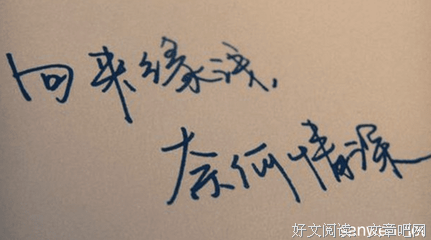 向来缘浅，
奈何情深
好文阅读 文章吧网